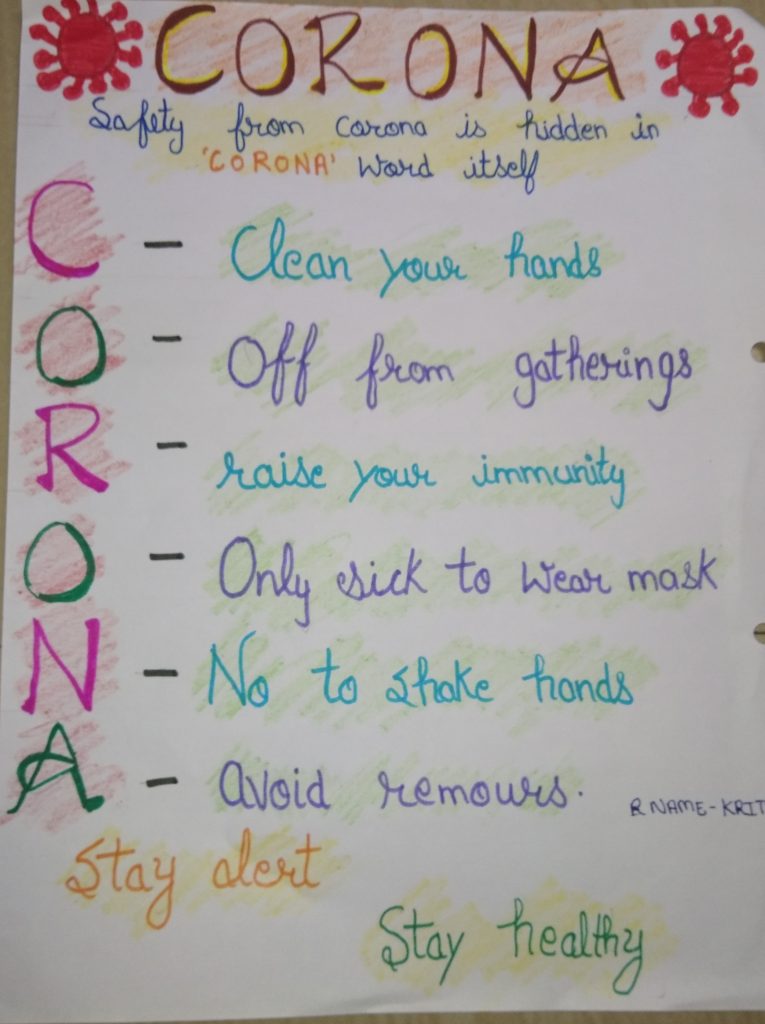 CORONA
Safety from corona is hidden in
'CORONA' word itself
C - Clean your hands
O - Off from gatherings
R - raise your immunity
O - Only sick to wear mask
N - No to shake hands
A - avoid remours.
R NAME-KRIT
Stay alert
Stay healthy